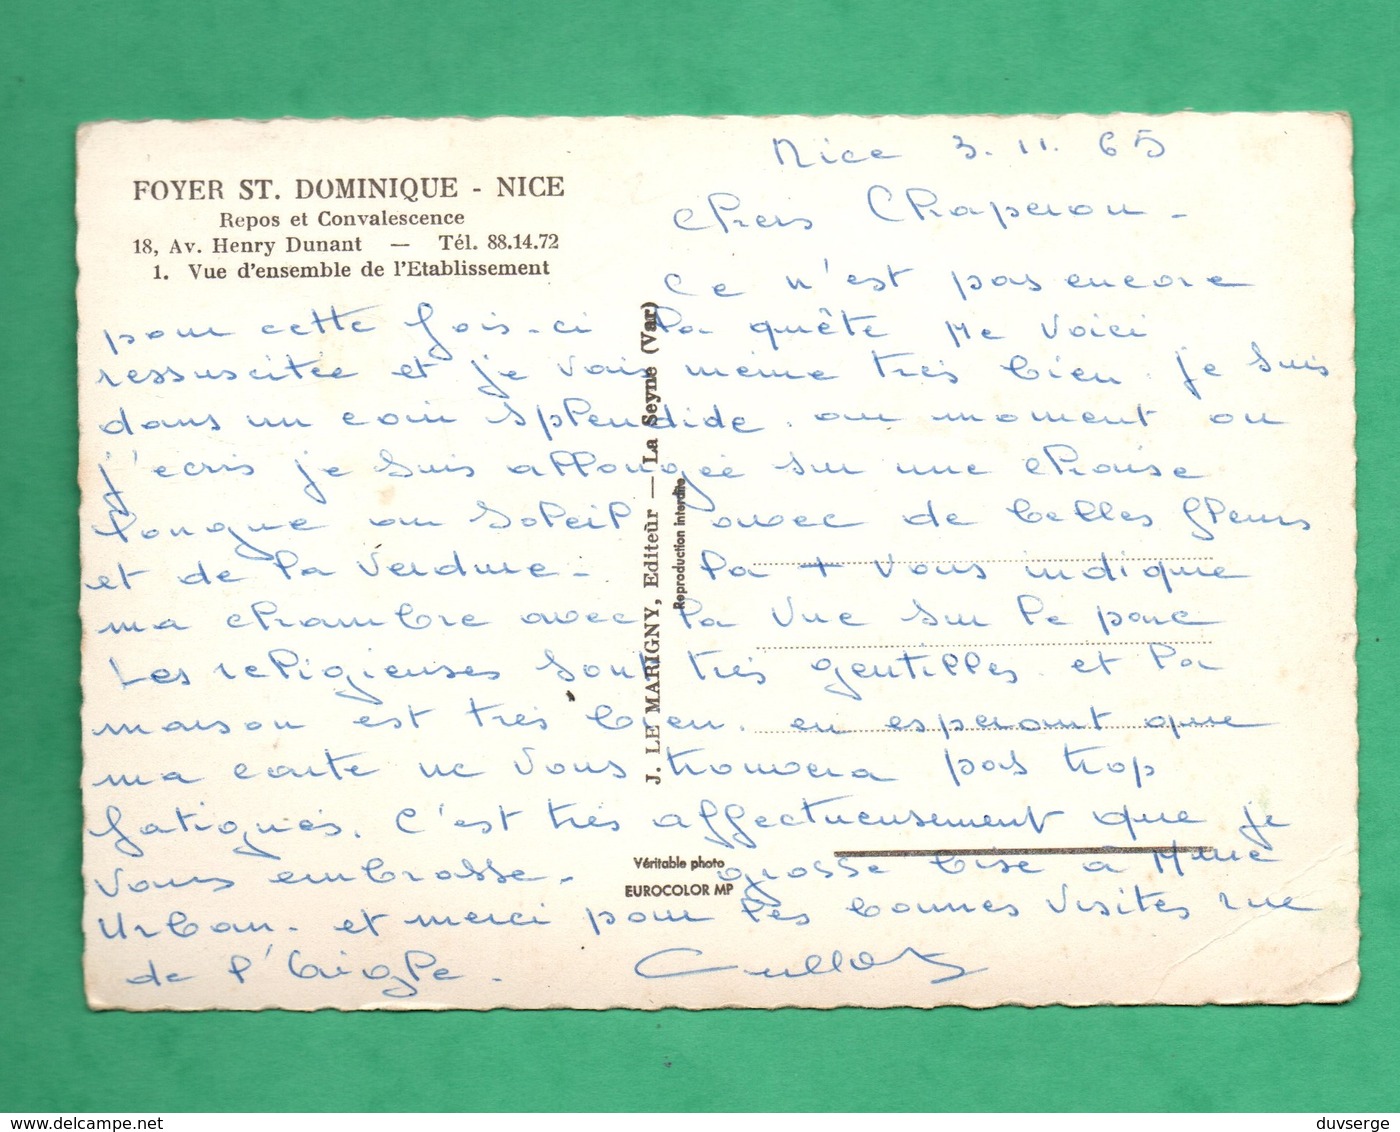 FOYER ST. DOMINIQUE - NICE
Repos et Convalescence
18, Av. Henry Dunant — Tél. 88.14.72
1. Vue d'ensemble de l'Etablissement
Nice 3.11.65
chers Chaperon -
Ce n'est pas encore
pour cette fois-ci la quête Me voici
ressuscitée et je vais même très bien. je suis
dans un coin splendide. au moment ou
j'ecris je suis allongée sur une chaise
longue au soleil avec de belles fleurs
et de la verdure - la + vous indique
ma chambre avec la vue sur le parc
Les religieuses sont très gentilles et la
maison est très bien. en esperant que
ma carte ne vous trouvera pas trop
fatigués. C'est très affectueusement que je
vous embrasse. grosse bise à Mme
Urban. et merci pour les bonnes visites rue
de l'
J. LE MARIGNY, Editeùr — La Seyne (Var)
Reproduction interdite
Véritable photo
EUROCOLOR MP
delcampe.net
duvserge